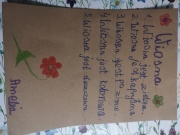 Wiosna
1. Wiosna jest zielona.
2. Wiosna jest kwiatowa
3. Wiosna jest
4. Wiosna jest kolorowa
5. Wiosna jest
Amelia